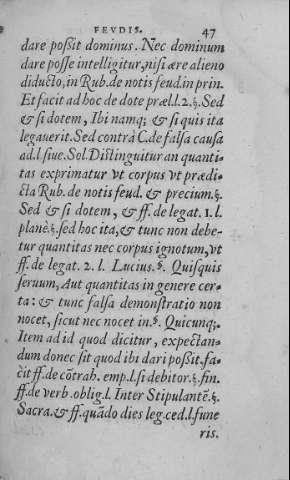 FEVDIS. 47
dare poßit dominus. Nec dominum
dare posse intelligitur, nisi ære alieno
diducto, in Rub. de notis feud. in prin.
Et facit ad hoc de dote præl. l. 2. §. Sed
& si dotem, Ibi namq; & si quis ita
legauerit. Sed contrà C. de falsa causa
ad. l. siue. Sol. Distinguitur an quanti-
tas exprimatur vt corpus vt prædi-
cta Rub. de notis feud. & precium. §.
Sed & si dotem, & ff. de legat. 1. l.
planè. §. sed hoc ita, & tunc non debe-
tur quantitas nec corpus ignotum, vt
ff. de legat. 2. l. Lucius. §. Quisquis
seruum, Aut quantitas in genere cer-
ta: & tunc falsa demonstratio non
nocet, sicut nec nocet in. §. Quicunq;.
Item ad id quod dicitur, expectan-
dum donec sit quod ibi dari poßit. fa-
cit ff. de cõtrah. emp. l. si debitor. §. fin.
ff. de verb. oblig. l. Inter Stipulantẽ. §.
Sacra. & ff. quãdo dies leg. ced. l. fune
ris.